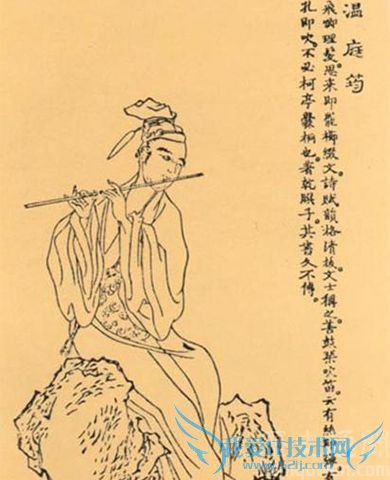 温庭筠
飛卿理髮思来即罷櫛綴文詩賦韻格清拔文士稱之善鼓琴吹笛云有絲即彈有
孔即吹不必柯亭爨桐也著乾𦠆子其書久不傳
我爱IT技术网
www.52ij.com